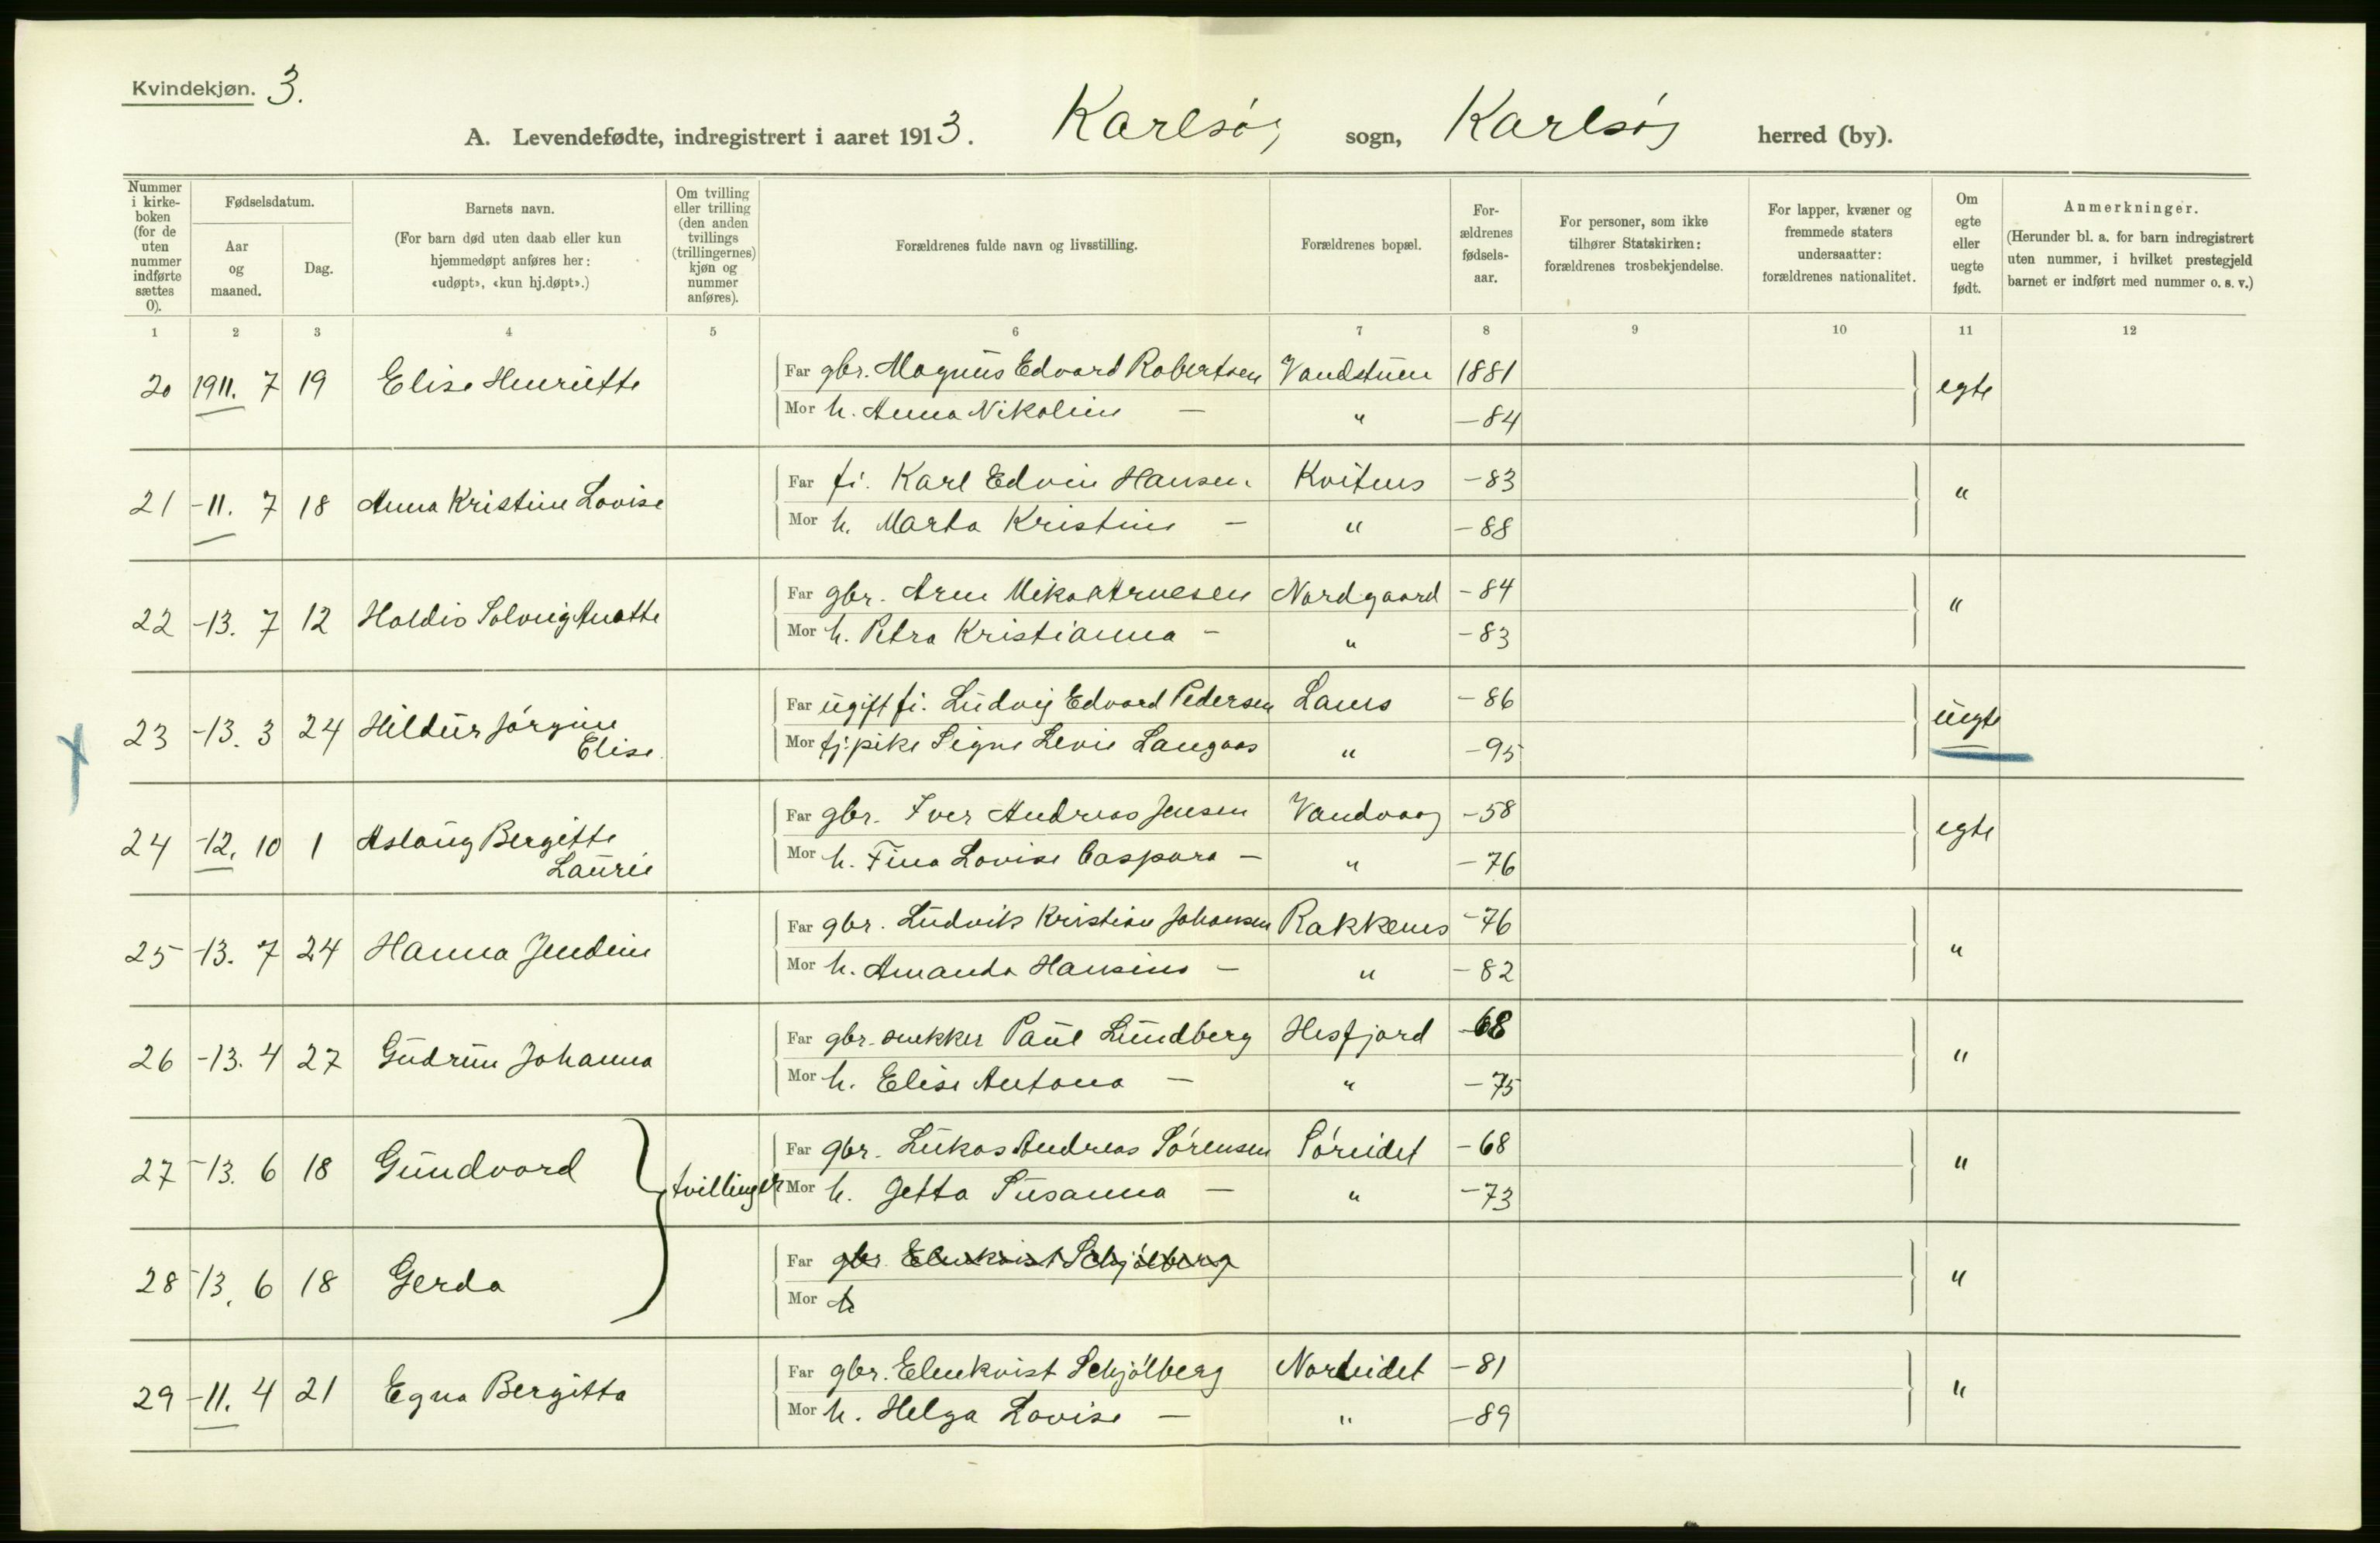 Kvindekjøn. 3.
A. Levendefødte, indregistrert i aaret 1913. Karlsøy sogn, Karlsøy herred (by).
Nummer i kirkeboken (for de uten nummer indførte sættes 0).
Fødselsdatum.
Aar og maaned.
Dag.
Barnets navn.
(For barn død uten daab eller kun hjemmedøpt anføres her: «udøpt», «kun hj.døpt».)
Om tvilling eller trilling (den anden tvillings (trillingernes) kjøn og nummer anføres).
Forældrenes fulde navn og livsstilling.
Forældrenes bopæl.
Forældrenes fødselsaar.
For personer, som ikke tilhører Statskirken: forældrenes trosbekjendelse.
For lapper, kvæner og fremmede staters undersaatter: forældrenes nationalitet.
Om egte eller uegte født.
Anmerkninger.
(Herunder bl. a. for barn indregistrert uten nummer, i hvilket prestegjeld barnet er indført med nummer o. s. v.)
1 2 3 4 5 6 7 8 9 10 11 12
20 1911. 7 19 Elise Henriette Far gbr. Magnus Edvard Robertsen 1881 egte
Mor h. Anna Nikoline — " —84
21 -11. 7 18 Anna Kristine Lovise Far fi. Karl Edvin Hansen Kvitnes -83 "
Mor h. Marta Kristine — " -88
22 -13. 7 12 Haldis Solveig Anette Far gbr. Arne Mikal Arnesen Nordgaard -84 "
Mor h. Petra Kristianna - " -83
23 -13. 3 24 Hildur Jørgine Elise Far ugift fi. Ludvig Edvard Pedersen Lanes -86 uegte
Mor tj.pike Signe Levie Langaas " -95
24 -12. 10 1 Aslaug Bergitte Laurie Far gbr. Iver Andreas Jensen Vandvaag -58 egte
Mor h. Fina Lovise Caspara — " -76
25 -13. 7 24 Hanna Jendine Far gbr. Ludvik Kristian Johansen Rakkenes -76 "
Mor h. Amanda Hansine — " -82
26 -13. 4 27 Gudrun Johanna Far gbr. snekker Paul Lundberg Hesfjord -68 "
Mor h. Elise Antona — " -75
27 -13. 6 18 Gundvord tvillinger Far gbr. Lukas Andreas Sørensen Søreidet -68 "
Mor h. Jetta Susanna — " -73
28 -13. 6 18 Gerda Far gbr. Elenkvist Schjølberg "
Mor h
29 -11. 4 21 Egna Bergitta Far gbr. Elenkvist Schjølberg Nordeidet -81 "
Mor h. Helga Lovise — " -89